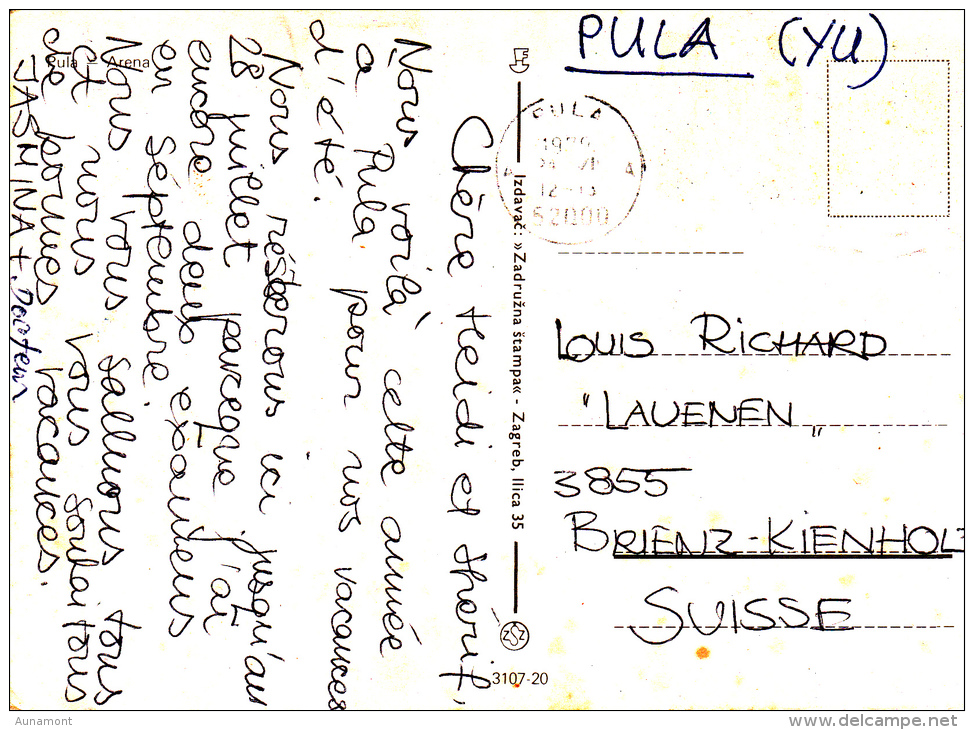 PULA (YU)
Pula — Arena
Chère Heidi et Sherif,
Nous voilà cette année
a Pula pour nos vacances
d'été.
Nous résterons ici jusqu'au
28 juillet parceque j'ai
encore deux examens
en séptembre.
Nous vous salluons tous
et nous vous souhaitons
de bonnes vacances.
JASMINA +
Izdavač: »Zadružna štampa« - Zagreb, Ilica 35
3107-20
PULA
12-13
52000
LOUIS RICHARD
"LAUENEN"
3855
BRIENZ-KIENHOLZ
SUISSE
Aunamont
delcampe.net